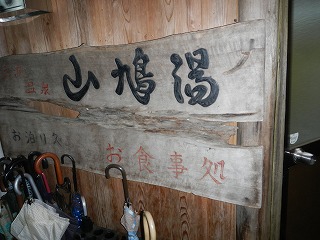 温泉 山鳩湯
お泊り処 お食事処